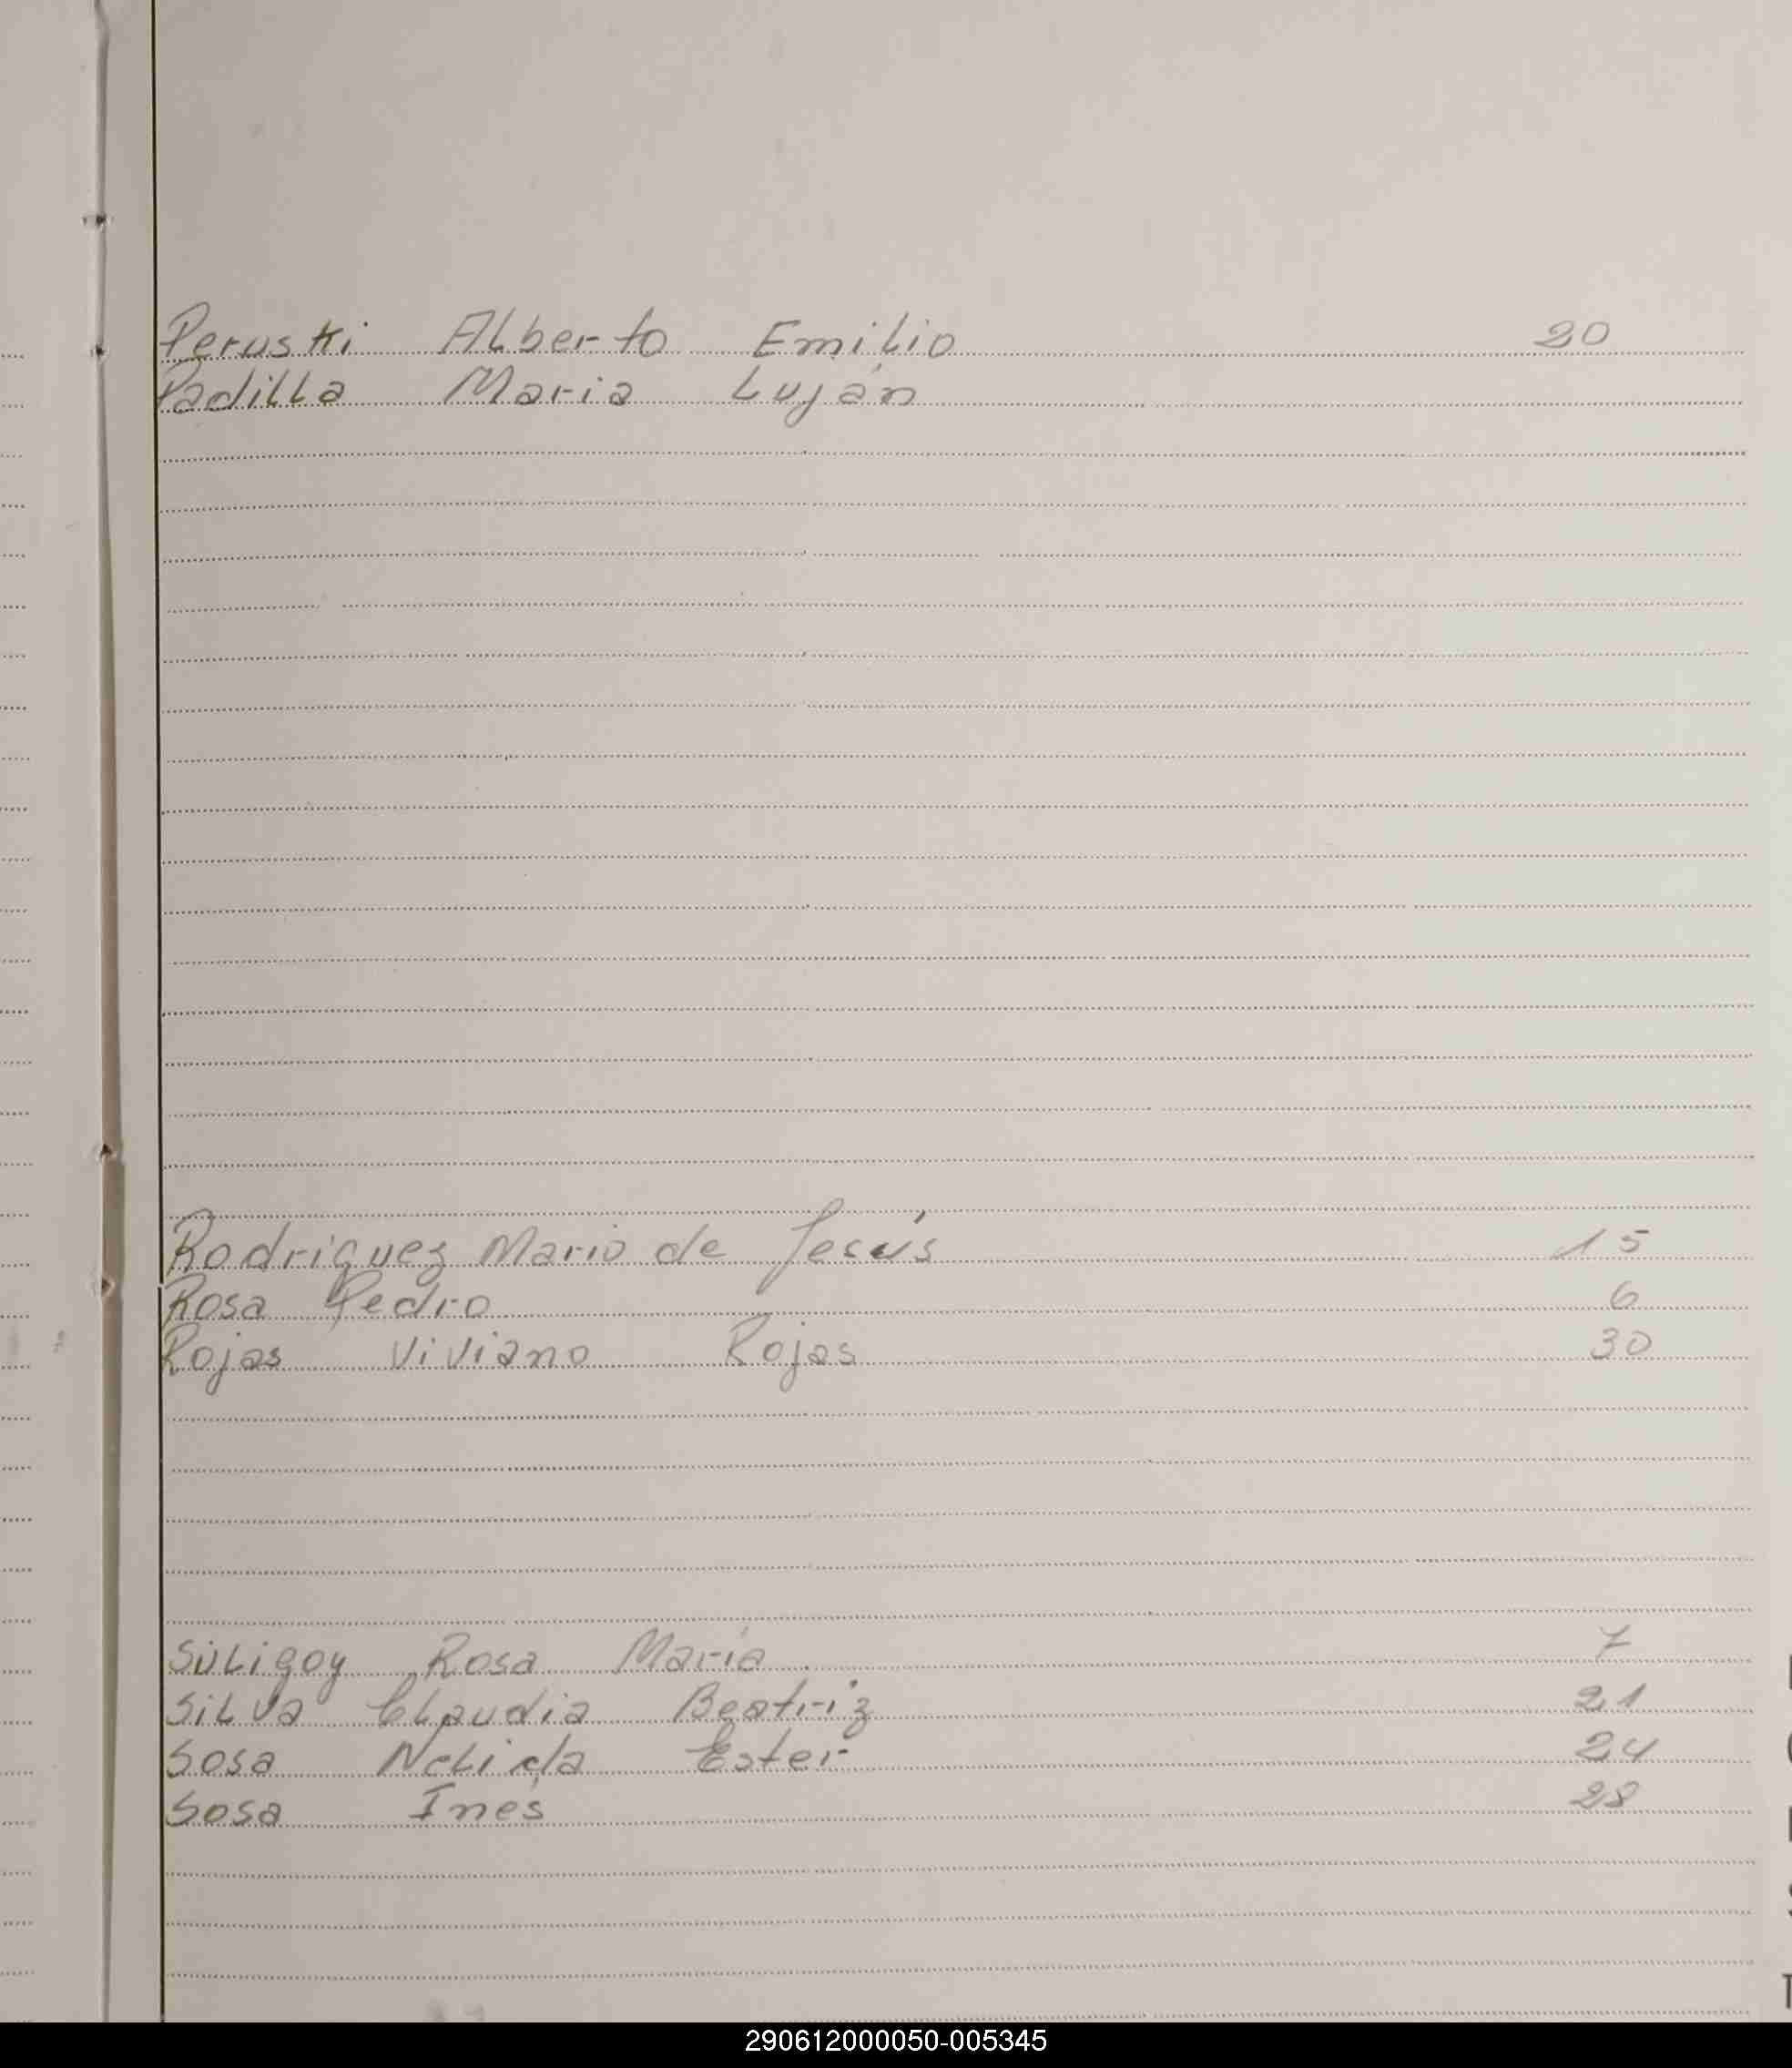 Peruski Alberto Emilio 20
Padilla Maria Luján
Rodriguez Mario de Jesús 15
Rosa Pedro 6
Rojas Viviano Rojas 30
Suligoy Rosa María 7
Silva Claudia Beatriz 21
Sosa Nelida Ester 24
Sosa Inés 28
290612000050-005345